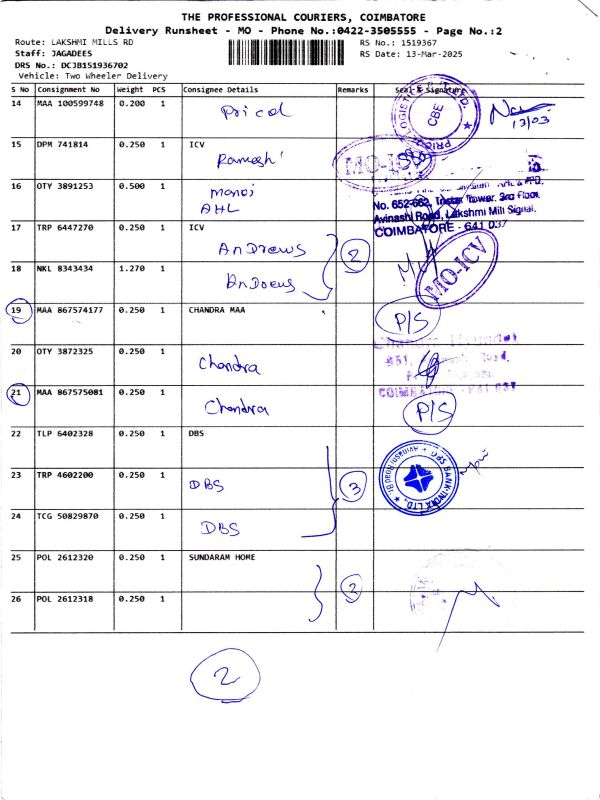 THE PROFESSIONAL COURIERS, COIMBATORE
Delivery Runsheet - MO - Phone No.:0422-3505555 - Page No.:2
Route: LAKSHMI MILLS RD
RS No.: 1519367
Staff: JAGADEES
RS Date: 13-Mar-2025
DRS No.: DCJB151936702
Vehicle: Two Wheeler Delivery
S No Consignment No Weight PCS Consignee Details Remarks Seal & Signature
14 MAA 100599748 0.200 1 Pricol
CBE
13/03
15 DPM 741814 0.250 1 ICV
Ramesh
MO-ICV
16 OTY 3891253 0.500 1 Manoj
AHL
No. 652-662, Tristar Tower, 3rd Floor,
Avinashi Road, Lakshmi Mill Signal,
COIMBATORE - 641 037
17 TRP 6447270 0.250 1 ICV
Andrews
2
18 NKL 8343434 1.270 1 Andrews
MO-ICV
19 MAA 867574177 0.250 1 CHANDRA MAA
P/S
20 OTY 3872325 0.250 1
Chandra
21 MAA 867575081 0.250 1
Chandra
P/S
22 TLP 6402328 0.250 1 DBS
23 TRP 4602200 0.250 1 DBS
3
DBS BANK INDIA LTD.
24 TCG 50829870 0.250 1 DBS
25 POL 2612320 0.250 1 SUNDARAM HOME
2
26 POL 2612318 0.250 1
2